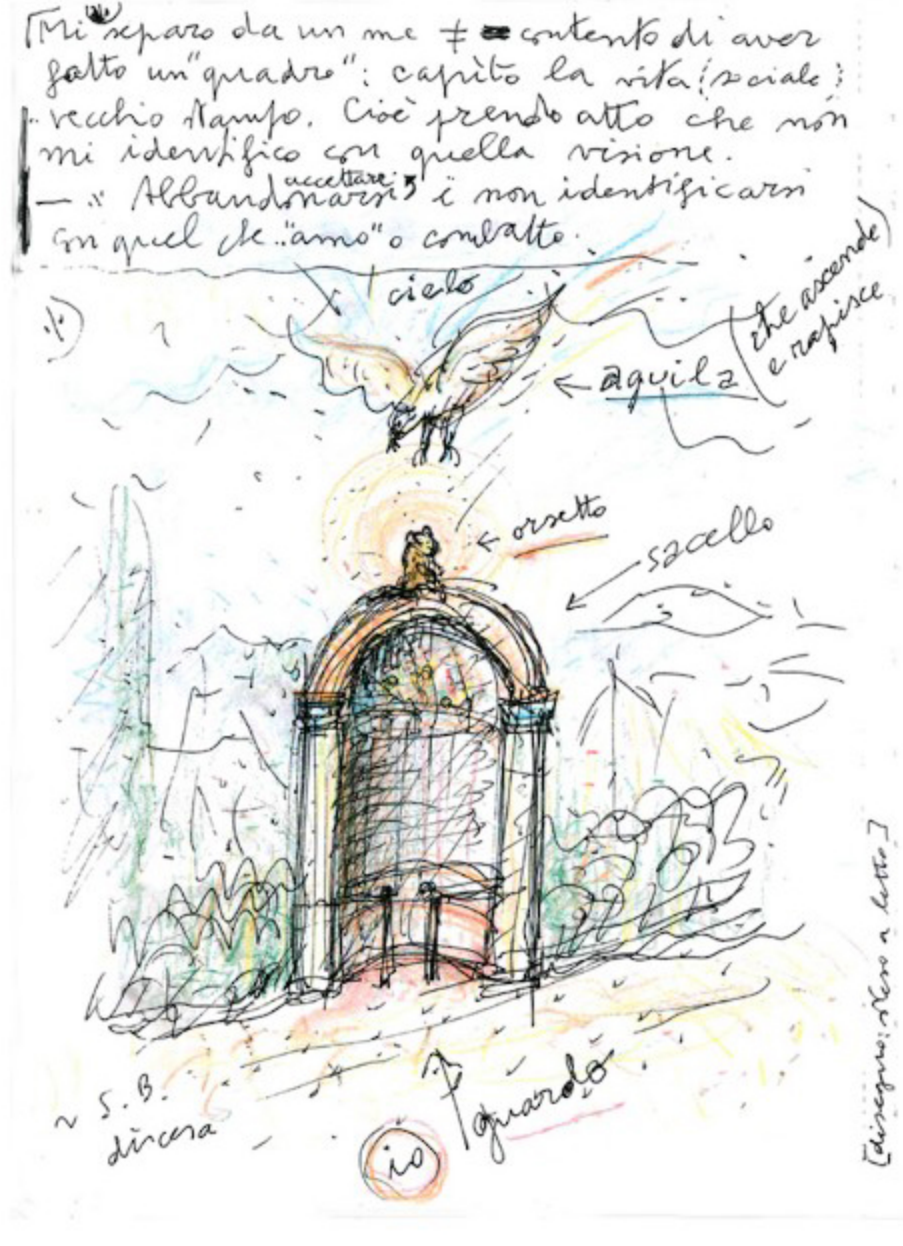 [Mi separo da un me ≠ contento di aver
fatto un "quadro": capìto la vita (sociale)
vecchio stampo. Cioè prendo atto che non
mi identifico con quella visione.
— : Abbandonarsi accettare è non identificarsi
con quel che "amo" o combatto.
cielo
(che ascende
e rapisce
← aquila
← orsetto
sacello
~ S. B.
discesa
guardo
io
[disegno: steso a letto]